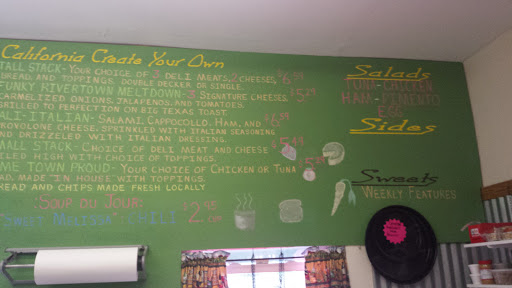 California Create Your Own
TALL STACK - YOUR CHOICE OF 3 DELI MEATS, 2 CHEESES,
BREAD AND TOPPINGS. DOUBLE DECKER OR SINGLE.
FUNKY RIVERTOWN MELTDOWN - 3 SIGNATURE CHEESES
CARMELIZED ONIONS, JALAPENOS, AND TOMATOES.
GRILLED TO PERFECTION ON BIG TEXAS TOAST.
CALI-ITALIAN - SALAMI, CAPPOCOLLO, HAM, AND
PROVOLONE CHEESE. SPRINKLED WITH ITALIAN SEASONING
AND DRIZZELED WITH ITALIAN DRESSING.
SMALL STACK - CHOICE OF DELI MEAT AND CHEESE
PILED HIGH WITH CHOICE OF TOPPINGS.
HOME TOWN PROUD - YOUR CHOICE OF CHICKEN OR TUNA
SALAD, MADE IN HOUSE WITH TOPPINGS.
BREAD AND CHIPS MADE FRESH LOCALLY
SOUP DU JOUR:
"SWEET MELISSA" CHILI $2.95
Salads
TUNA - CHICKEN
HAM - PEMENTO
EGG
Sides
Sweets
WEEKLY FEATURES